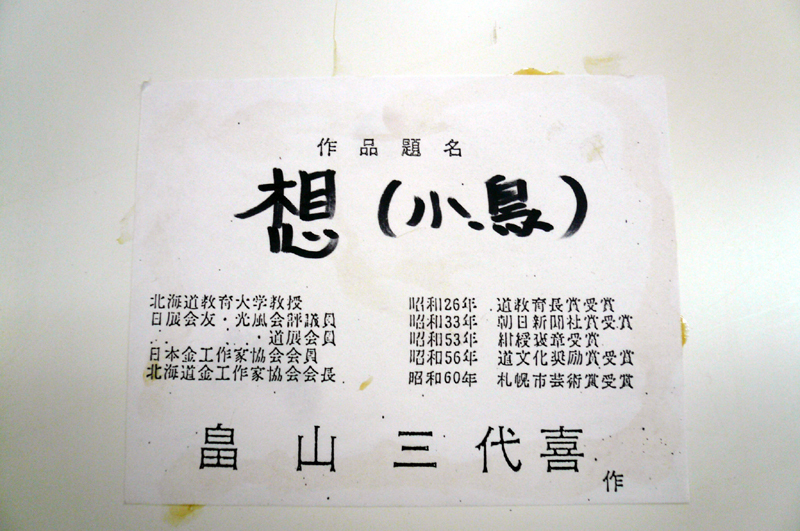 作品題名
想(小鳥)
北海道教育大学教授
日展会友・光風会評議員
・道展会員
日本金工作家協会会員
北海道金工作家協会会長
昭和26年 道教育長賞受賞
昭和33年 朝日新聞社賞受賞
昭和53年 紺綬褒章受章
昭和56年 道文化奨励賞受賞
昭和60年 札幌市芸術賞受賞
畠山三代喜
作